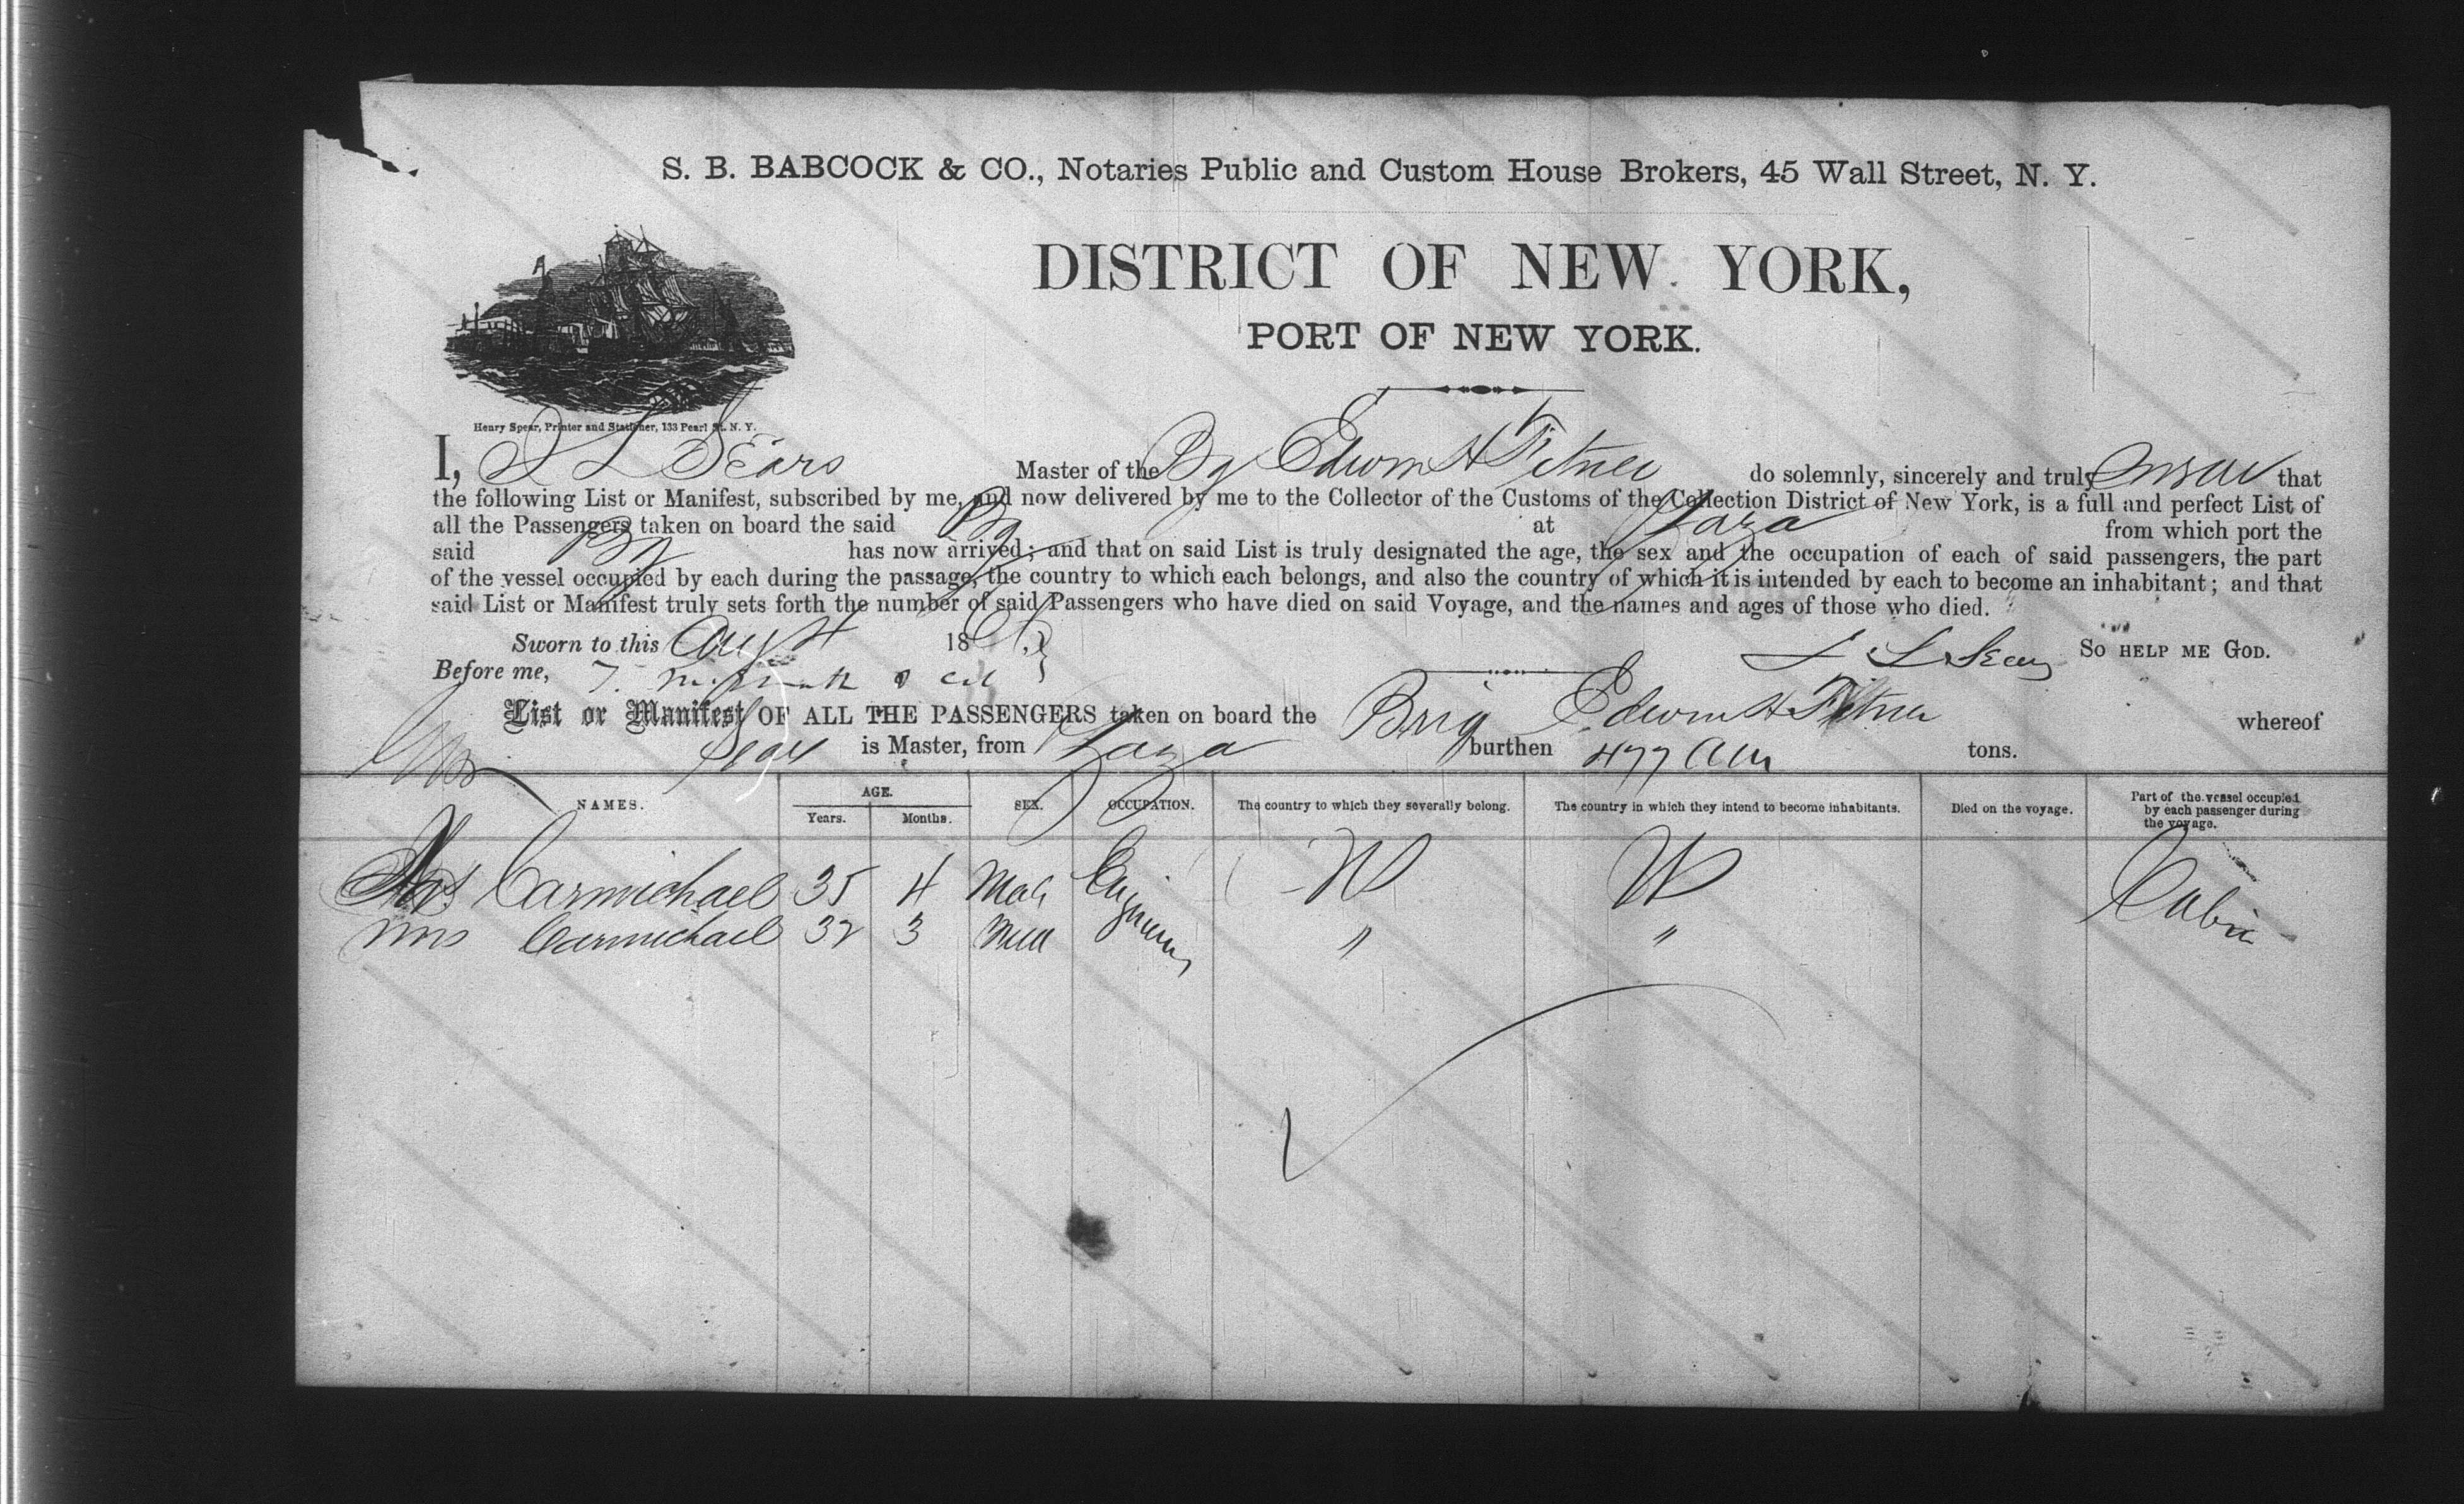 S. B. BABCOCK & CO., Notaries Public and Custom House Brokers, 45 Wall Street, N. Y.
DISTRICT OF NEW YORK,
PORT OF NEW YORK.
Henry Spear, Printer and Stationer, 133 Pearl St. N. Y.
I, L Sears Master of the Bg Edwin H Fitler do solemnly, sincerely and truly swear that
the following List or Manifest, subscribed by me, and now delivered by me to the Collector of the Customs of the Collection District of New York, is a full and perfect List of
all the Passengers taken on board the said Bg at Zaza from which port the
said Bg has now arrived; and that on said List is truly designated the age, the sex and the occupation of each of said passengers, the part
of the vessel occupied by each during the passage, the country to which each belongs, and also the country of which it is intended by each to become an inhabitant; and that
said List or Manifest truly sets forth the number of said Passengers who have died on said Voyage, and the names and ages of those who died.
Sworn to this Aug 4 18 L Sears SO HELP ME GOD.
Before me,
List or Manifest OF ALL THE PASSENGERS taken on board the Brig Edwin H Fitler whereof
Sears is Master, from Zaza burthen 477 tons.
NAMES. AGE. Years. Months. SEX. OCCUPATION. The country to which they severally belong. The country in which they intend to become inhabitants. Died on the voyage. Part of the vessel occupied by each passenger during the voyage.
Carmichael 35 4 Male Engineer US US Cabin
Mrs Carmichael 32 3 " "